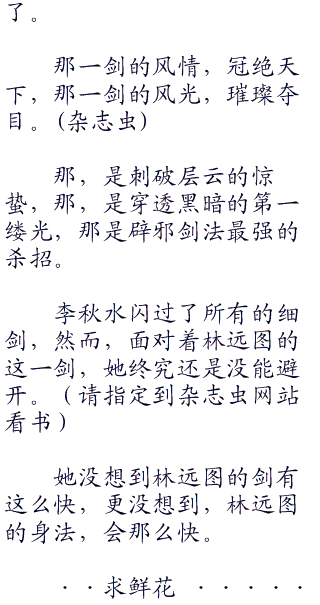 了。
那一剑的风情，冠绝天
下，那一剑的风光，璀璨夺
目。(杂志虫)
那，是刺破层云的惊
蛰，那，是穿透黑暗的第一
缕光，那是辟邪剑法最强的
杀招。
李秋水闪过了所有的细
剑，然而，面对着林远图的
这一剑，她终究还是没能避
开。（请指定到杂志虫网站
看书）
她没想到林远图的剑有
这么快，更没想到，林远图
的身法，会那么快。
··求鲜花 ·····